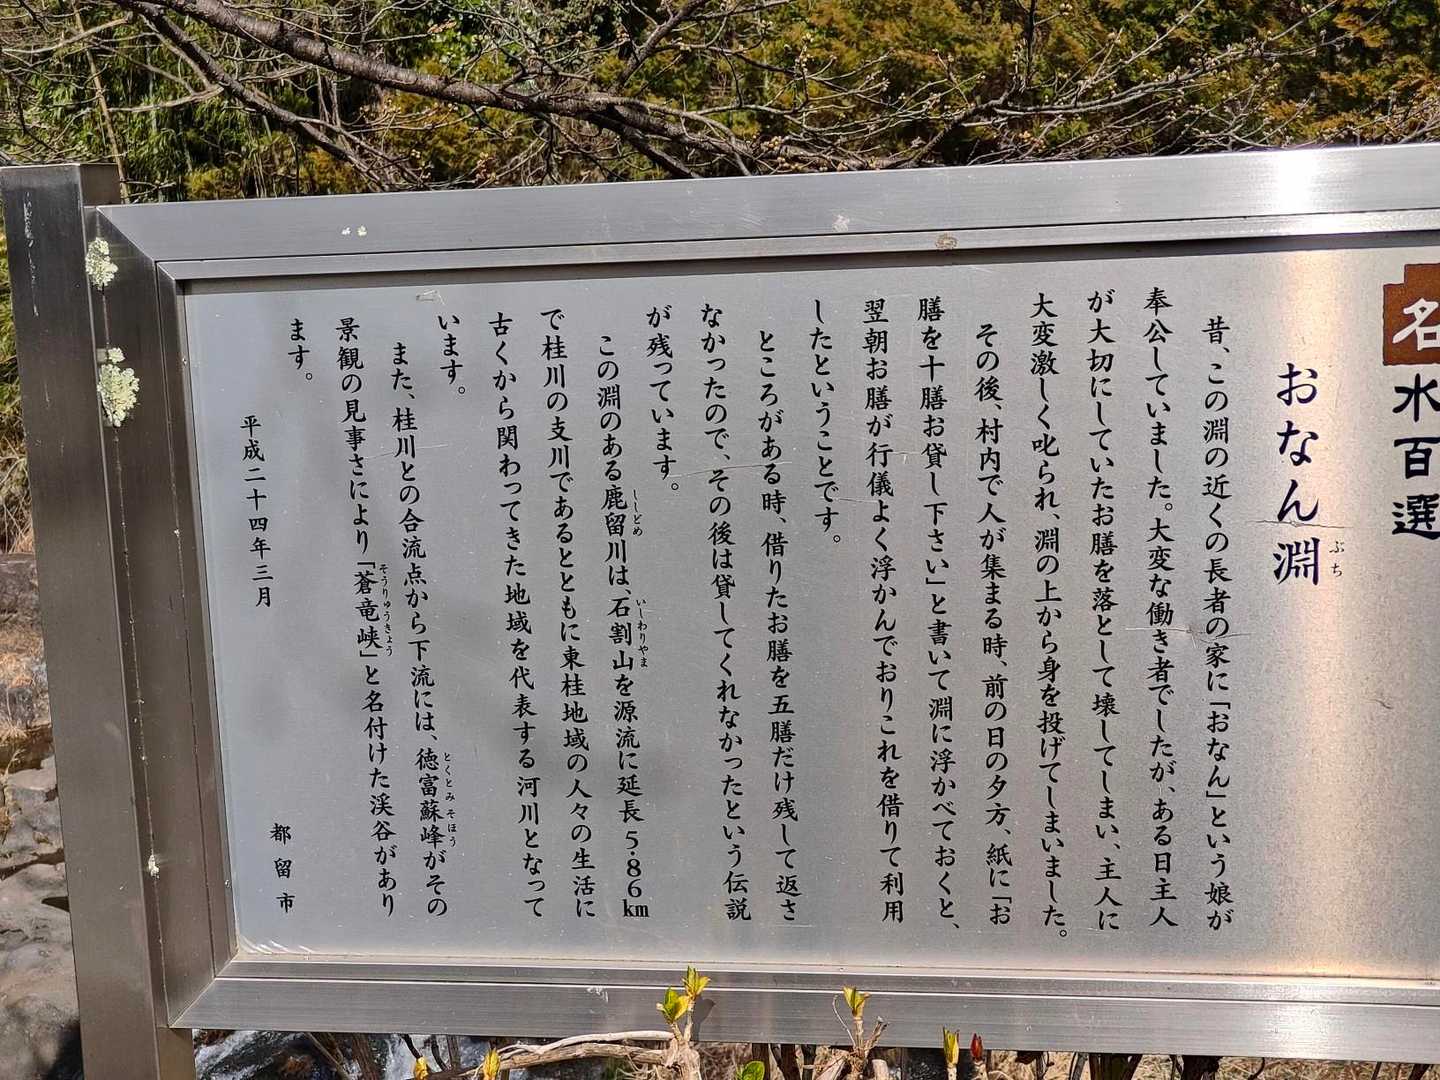 名水百選
おなん淵
ぶち
昔、この淵の近くの長者の家に「おなん」という娘が
奉公していました。大変な働き者でしたが、ある日主人
が大切にしていたお膳を落として壊してしまい、主人に
大変激しく叱られ、淵の上から身を投げてしまいました。
その後、村内で人が集まる時、前の日の夕方、紙に「お
膳を十膳お貸し下さい」と書いて淵に浮かべておくと、
翌朝お膳が行儀よく浮かんでおりこれを借りて利用
したということです。
ところがある時、借りたお膳を五膳だけ残して返さ
なかったので、その後は貸してくれなかったという伝説
が残っています。
この淵のある鹿留川は、石割山を源流に延長5.86km
ししどめ
いしわりやま
で桂川の支川であるとともに東桂地域の人々の生活に
古くから関わってきた地域を代表する河川となって
います。
また、桂川との合流点から下流には、徳富蘇峰がその
とくとみそほう
景観の見事さにより「蒼竜峡」と名付けた渓谷があり
そうりゅうきょう
ます。
平成二十四年三月
都留市